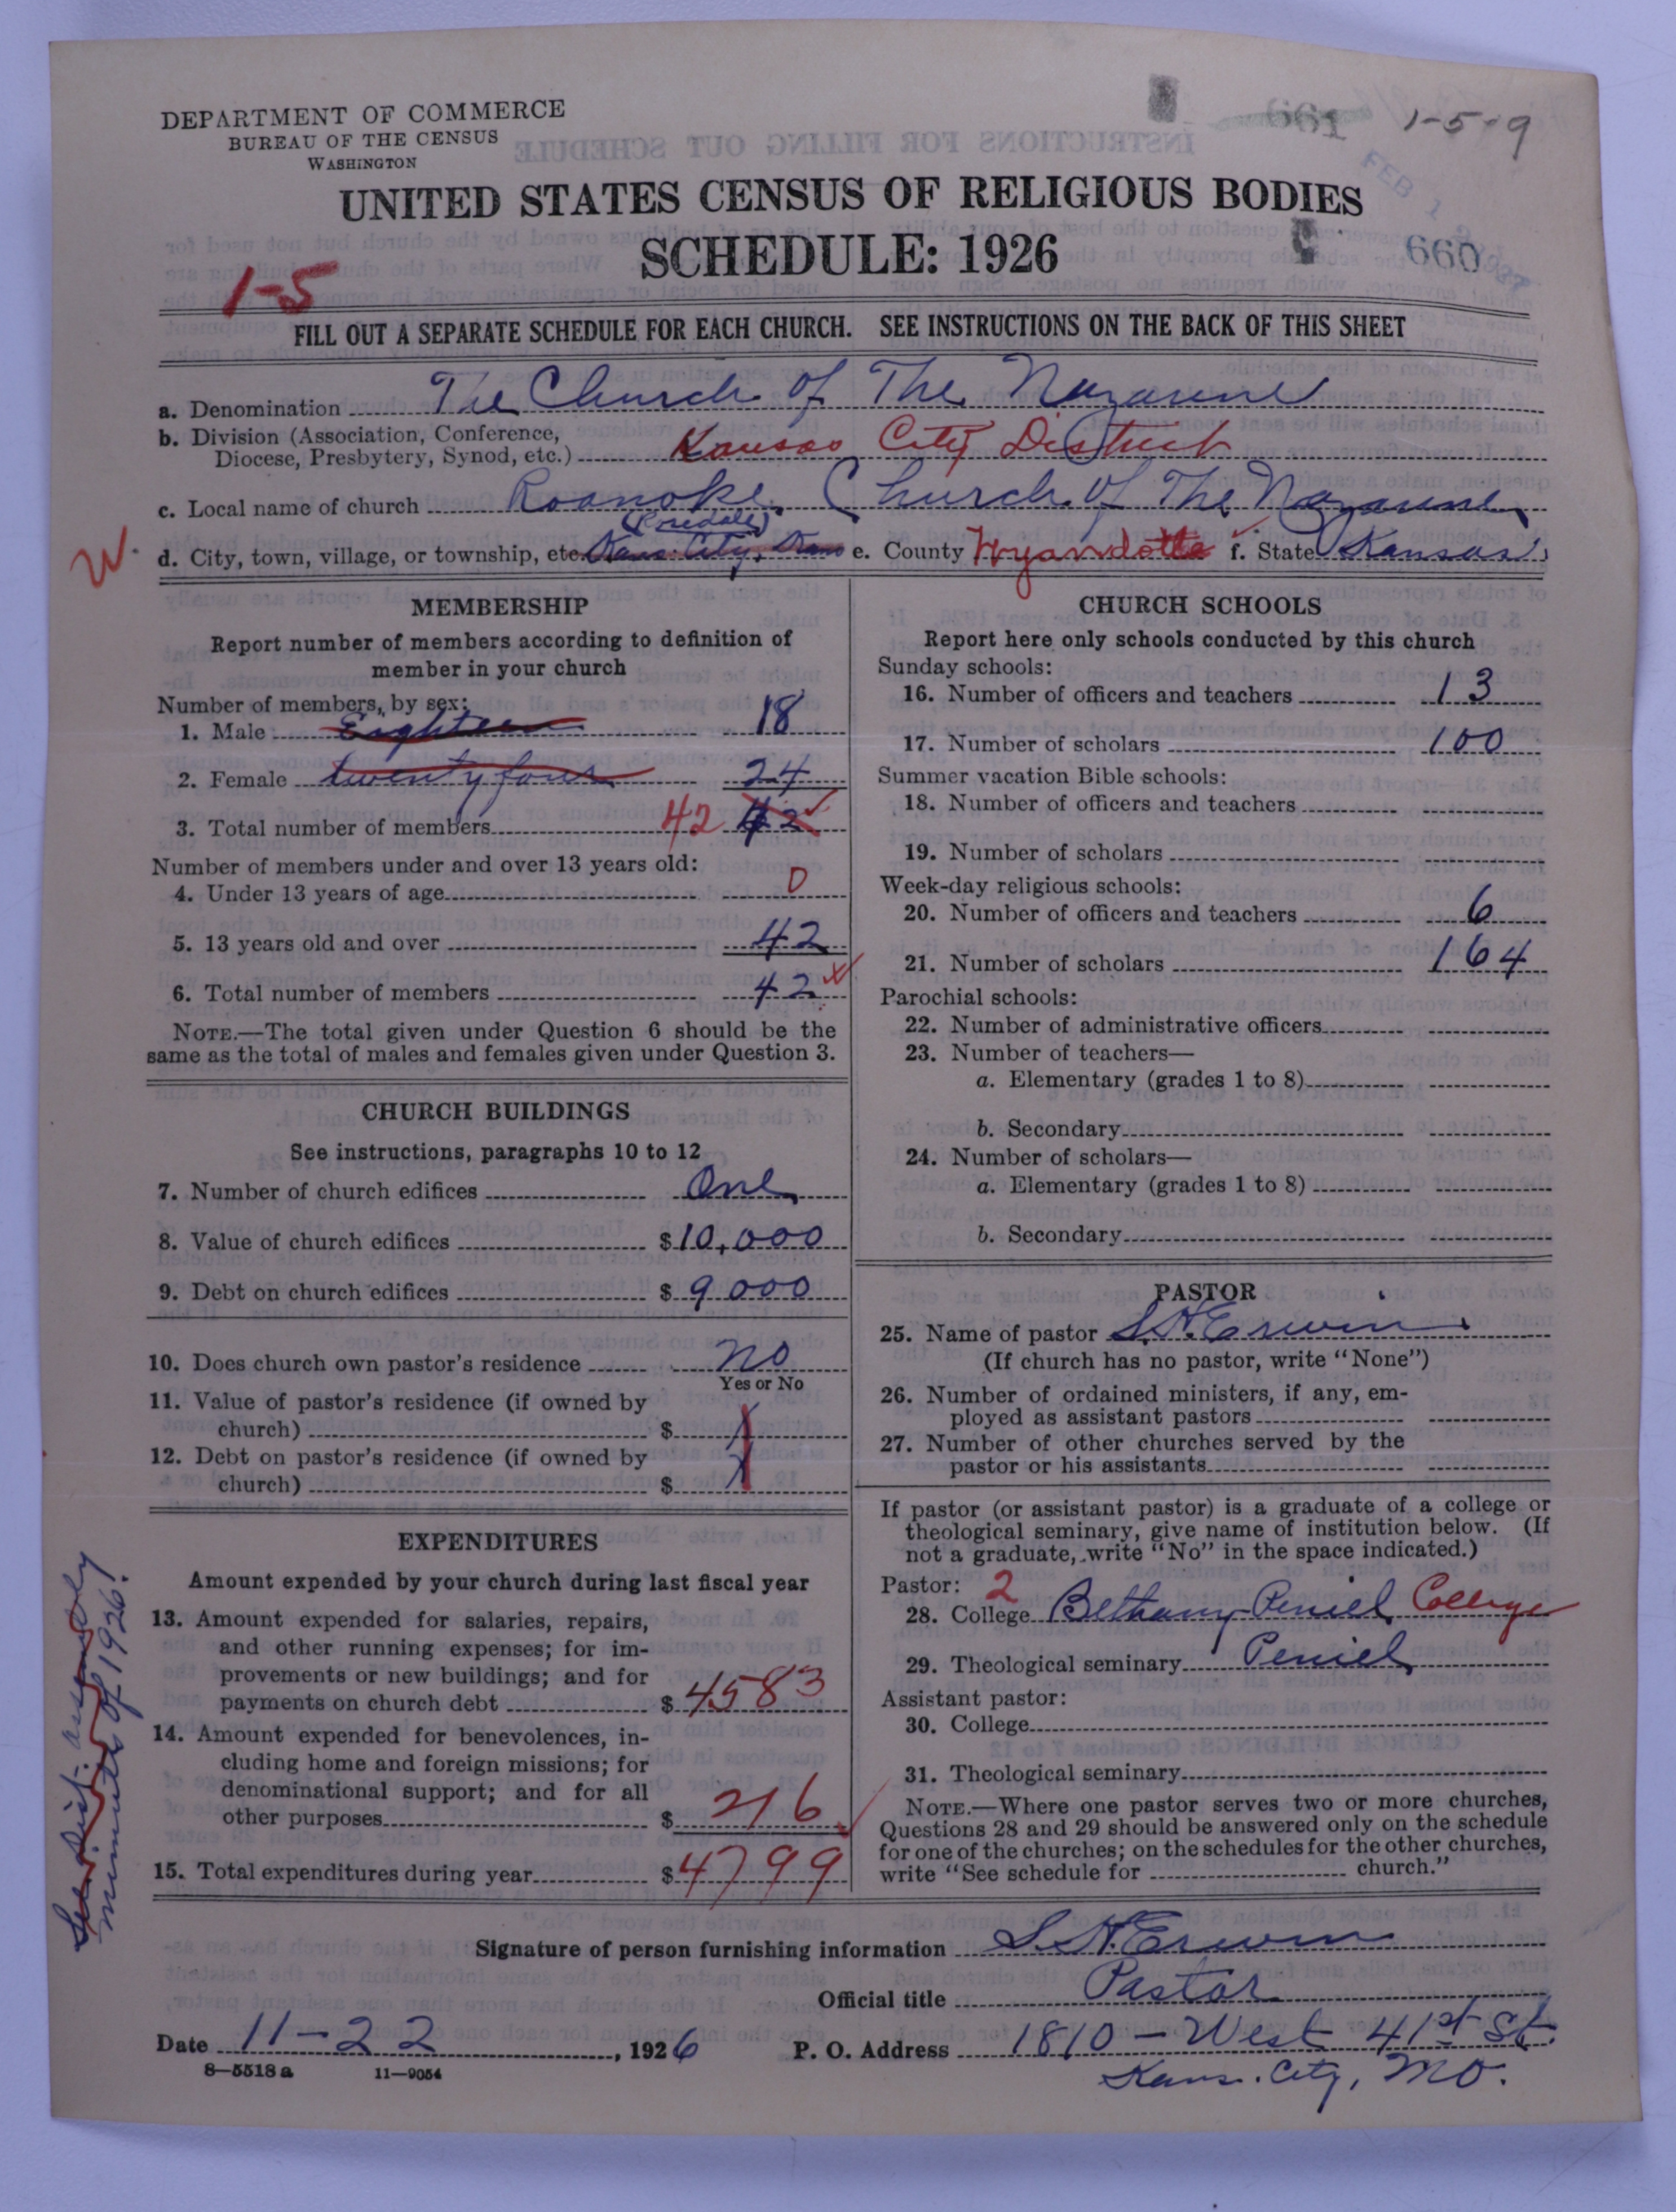 DEPARTMENT OF COMMERCE
BUREAU OF THE CENSUS
WASHINGTON
661 1-5-9
UNITED STATES CENSUS OF RELIGIOUS BODIES
SCHEDULE: 1926
FEB 1
660
1-5
FILL OUT A SEPARATE SCHEDULE FOR EACH CHURCH. SEE INSTRUCTIONS ON THE BACK OF THIS SHEET
a. Denomination The Church of The Nazarene
b. Division (Association, Conference,
Diocese, Presbytery, Synod, etc.) Kansas City District
c. Local name of church Roanoke Church of The Nazarene
(Rosedale)
W. d. City, town, village, or township, etc. Kans. City, Kans e. County Wyandotte f. State Kansas
MEMBERSHIP
Report number of members according to definition of
member in your church
Number of members, by sex:
1. Male Eighteen 18
2. Female twenty four 24
3. Total number of members 42 42
Number of members under and over 13 years old:
4. Under 13 years of age 0
5. 13 years old and over 42
6. Total number of members 42
NOTE.—The total given under Question 6 should be the
same as the total of males and females given under Question 3.
CHURCH BUILDINGS
See instructions, paragraphs 10 to 12
7. Number of church edifices One
8. Value of church edifices $10,000
9. Debt on church edifices $ 9000
10. Does church own pastor's residence No
Yes or No
11. Value of pastor's residence (if owned by
church) $ X
12. Debt on pastor's residence (if owned by
church) $ X
EXPENDITURES
Amount expended by your church during last fiscal year
13. Amount expended for salaries, repairs,
and other running expenses; for im-
provements or new buildings; and for
payments on church debt $ 4583
14. Amount expended for benevolences, in-
cluding home and foreign missions; for
denominational support; and for all
other purposes $ 216
15. Total expenditures during year $4799
See Dist. assembly
minutes of 1926!
CHURCH SCHOOLS
Report here only schools conducted by this church
Sunday schools:
16. Number of officers and teachers 13
17. Number of scholars 100
Summer vacation Bible schools:
18. Number of officers and teachers
19. Number of scholars
Week-day religious schools:
20. Number of officers and teachers 6
21. Number of scholars 164
Parochial schools:
22. Number of administrative officers
23. Number of teachers—
a. Elementary (grades 1 to 8)
b. Secondary
24. Number of scholars—
a. Elementary (grades 1 to 8)
b. Secondary
PASTOR
25. Name of pastor S.H. Erwin
(If church has no pastor, write "None")
26. Number of ordained ministers, if any, em-
ployed as assistant pastors
27. Number of other churches served by the
pastor or his assistants
If pastor (or assistant pastor) is a graduate of a college or
theological seminary, give name of institution below. (If
not a graduate, write "No" in the space indicated.)
Pastor: 2
28. College Bethany-Peniel College
29. Theological seminary Peniel
Assistant pastor:
30. College
31. Theological seminary
NOTE.—Where one pastor serves two or more churches,
Questions 28 and 29 should be answered only on the schedule
for one of the churches; on the schedules for the other churches,
write "See schedule for church."
Signature of person furnishing information S.H. Erwin
Official title Pastor
Date 11-22, 1926 P. O. Address 1810 - West 41st St.
8—5518 a 11—9054
Kans. City, Mo.